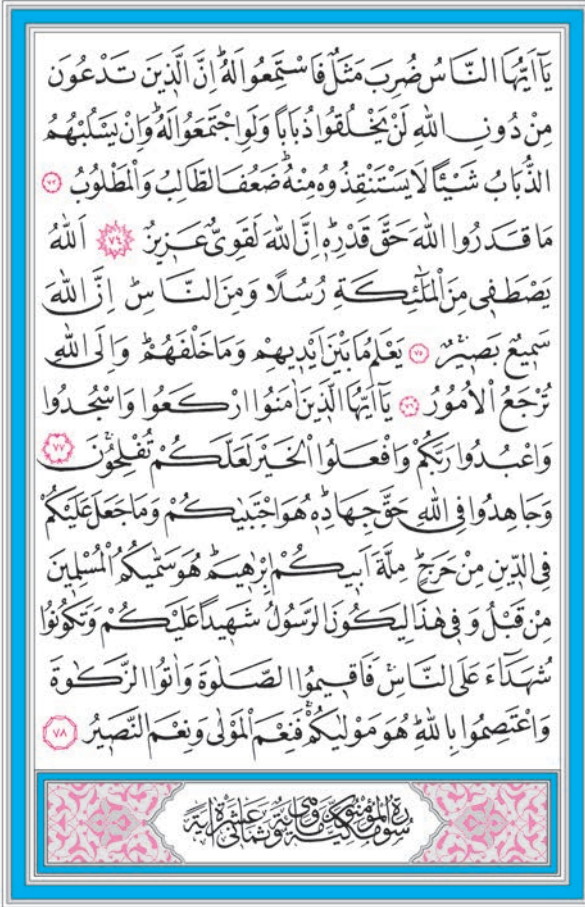 يَٓا اَيُّهَا النَّاسُ ضُرِبَ مَثَلٌ فَاسْتَمِعُوا لَهُۜ اِنَّ الَّذ۪ينَ تَدْعُونَ
مِنْ دُونِ اللّٰهِ لَنْ يَخْلُقُوا ذُبَاباً وَلَوِ اجْتَمَعُوا لَهُۜ وَاِنْ يَسْلُبْهُمُ
الذُّبَابُ شَيْـٔاً لَا يَسْتَنْقِذُوهُ مِنْهُۜ ضَعُفَ الطَّالِبُ وَالْمَطْلُوبُ ﴿٧٣﴾
مَا قَدَرُوا اللّٰهَ حَقَّ قَدْرِه۪ۜ اِنَّ اللّٰهَ لَقَوِيٌّ عَز۪يزٌ ﴿٧٤﴾ اَللّٰهُ
يَصْطَف۪ي مِنَ الْمَلٰٓئِكَةِ رُسُلًا وَمِنَ النَّاسِۜ اِنَّ اللّٰهَ
سَم۪يعٌ بَص۪يرٌۚ ﴿٧٥﴾ يَعْلَمُ مَا بَيْنَ اَيْد۪يهِمْ وَمَا خَلْفَهُمْۜ وَاِلَى اللّٰهِ
تُرْجَعُ الْاُمُورُ ﴿٧٦﴾ يَٓا اَيُّهَا الَّذ۪ينَ اٰمَنُوا ارْكَعُوا وَاسْجُدُوا
وَاعْبُدُوا رَبَّكُمْ وَافْعَلُوا الْخَيْرَ لَعَلَّكُمْ تُفْلِحُونَۚ ﴿٧٧﴾
وَجَاهِدُوا فِي اللّٰهِ حَقَّ جِهَادِه۪ۜ هُوَ اجْتَبٰيكُمْ وَمَا جَعَلَ عَلَيْكُمْ
فِي الدّ۪ينِ مِنْ حَرَجٍۜ مِلَّةَ اَب۪يكُمْ اِبْرٰه۪يمَۜ هُوَ سَمّٰيكُمُ الْمُسْلِم۪ينَ
مِنْ قَبْلُ وَف۪ي هٰذَا لِيَكُونَ الرَّسُولُ شَه۪يداً عَلَيْكُمْ وَتَكُونُوا
شُهَدَٓاءَ عَلَى النَّاسِۚ فَاَق۪يمُوا الصَّلٰوةَ وَاٰتُوا الزَّكٰوةَ
وَاعْتَصِمُوا بِاللّٰهِۜ هُوَ مَوْلٰيكُمْۚ فَنِعْمَ الْمَوْلٰى وَنِعْمَ النَّص۪يرُ ﴿٧٨﴾
سُورَةُ الْمُؤْمِنُونَ مَكِّيَّةٌ وَهِيَ مِائَةٌ وَثَمَانِي عَشْرَةَ اٰيَةً